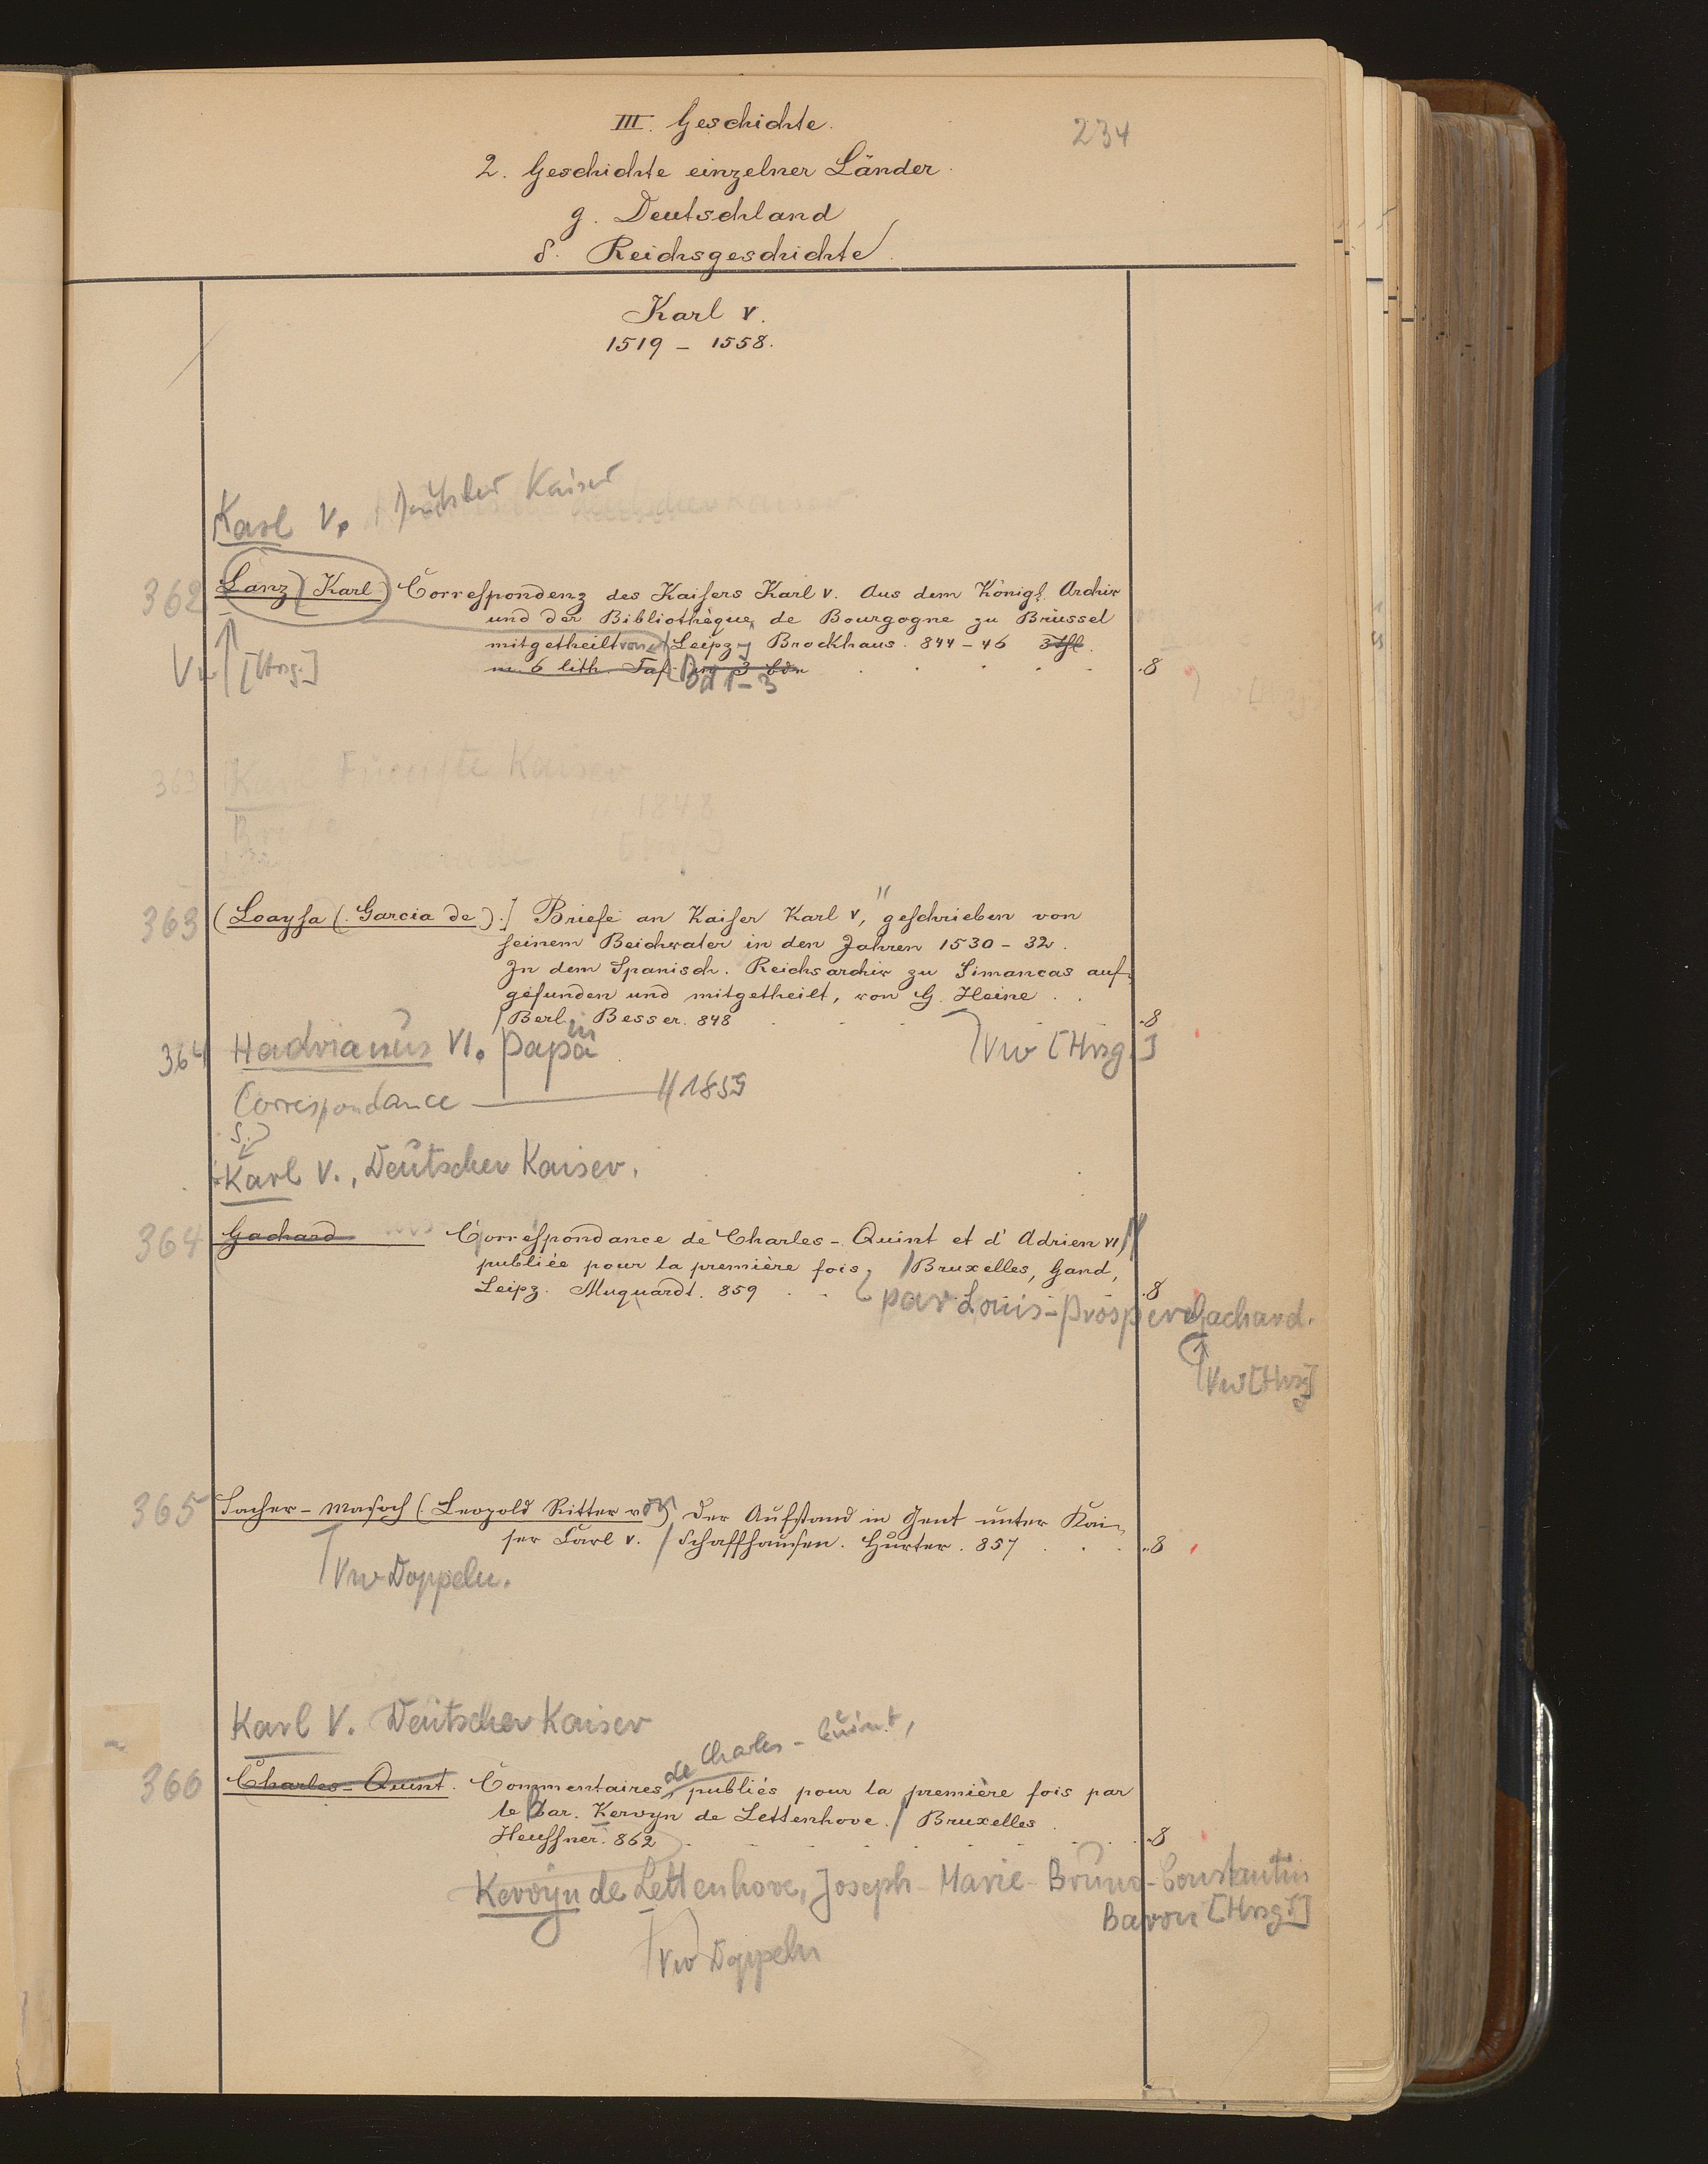 III. Geschichte.
234
2. Geschichte einzelner Länder.
g. Deutschland
δ. Reichsgeschichte
Karl V.
1519 – 1558.
Karl V. Deutscher Kaiser
362 Lanz (Karl) Correspondenz des Kaisers Karl V. Aus dem Königl. Archiv
und der Bibliothèque de Bourgogne zu Brüssel
mitgetheilt von Leipzg Brockhaus. 844–46 3 Thl.
m. 6 lith. Taf. in 3 Bdn 8
Vw [Hrsg.] Bd 1–3
363 Karl Fuenfte Kaiser
1848
363 (Loaysa (Garcia de).] Briefe an Kaiser Karl V, geschrieben von
seinem Beichtvater in den Jahren 1530–32.
In dem Spanisch. Reichsarchiv zu Simancas auf-
gefunden und mitgetheilt, von G. Heine
Berlin Besser. 848 8
364 Hadrianus VI. Papa Vw [Hrsg.]
Correspondance — 1859
s.
Karl V., Deutscher Kaiser.
364 Gachard Correspondance de Charles-Quint et d'Adrien VI
publiée pour la première fois, Bruxelles, Gand,
Leipz. Muquardt. 859 8
par Louis-Prosper Gachard.
Vw [Hrsg]
365 Sacher-Masoch (Leopold Ritter von) Der Aufstand in Gent unter Kai-
ser Carl V. Schaffhausen. Hurter. 857 8
Vw Doppeln.
Karl V. Deutscher Kaiser
de Charles-Quint,
366 Charles-Quint. Commentaires publiés pour la première fois par
le Bar. Kervyn de Lettenhove. Bruxelles
Heussner. 862 8
Kervyn de Lettenhove, Joseph-Marie-Bruno-Constantin
Baron [Hrsg.]
Vw Doppeln